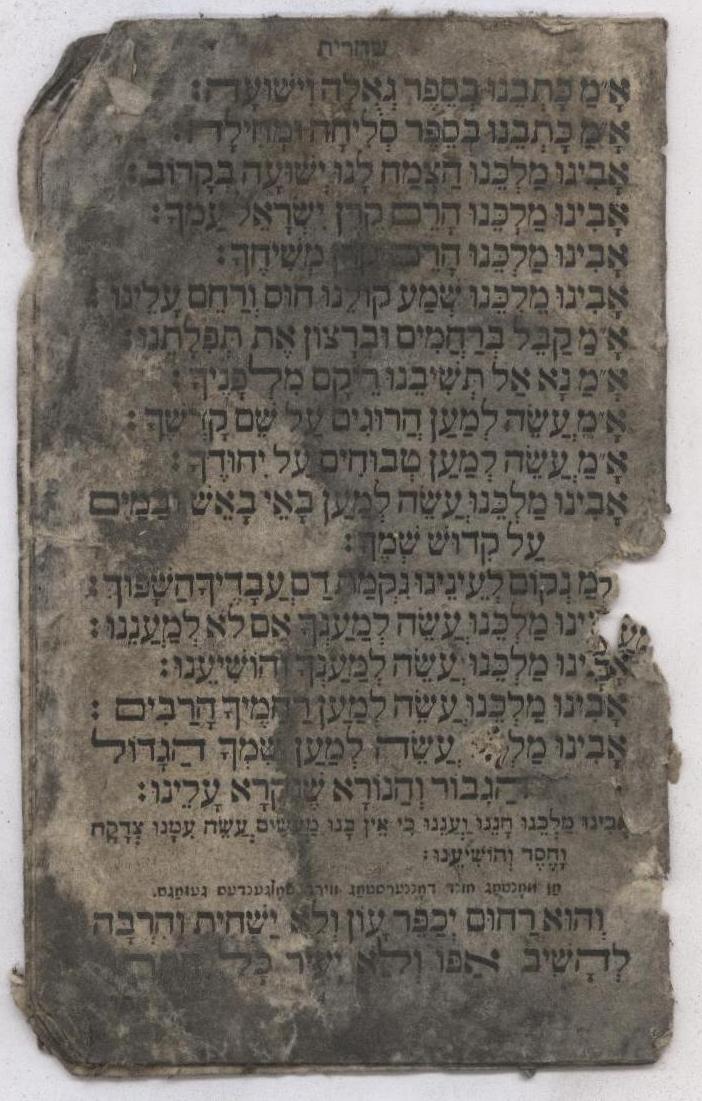 שחרית
אָ״מַ כָּתְבֵנוּ בְּסֵפֶר גְאֻלָה וִישׁוּעָה:
אָ״מַ כָּתְבֵנוּ בְּסֵפֶר סְלִיחָה וּמְחִילָה:
אָבִינוּ מַלְכֵּנוּ הַצְמַח לָנוּ יְשׁוּעָה בְּקָרוֹב:
אָבִינוּ מַלְכֵּנוּ הָרֵם קֶרֶן יִשְׂרָאֵל עַמֶּךָ:
אָבִינוּ מַלְכֵּנוּ הָרֵם קֶרֶן מְשִׁיחֶךָ:
אָבִינוּ מַלְכֵּנוּ שְׁמַע קוֹלֵנוּ חוּס וְרַחֵם עָלֵינוּ:
אָ״מַ קַבֵּל בְּרַחֲמִים וּבְרָצוֹן אֶת תְּפִלָּתֵנוּ:
אָ״מַ נָא אַל תְּשִׁיבֵנוּ רֵיקָם מִלְּפָנֶיךָ:
אָ״מַ עֲשֵׂה לְמַעַן הֲרוּגִים עַל שֵׁם קָדְשֶׁךָ:
אָ״מַ עֲשֵׂה לְמַעַן טְבוּחִים עַל יִחוּדֶךָ:
אָבִינוּ מַלְכֵּנוּ עֲשֵׂה לְמַעַן בָּאֵי בָאֵשׁ וּבַמַּיִם
עַל קִדּוּשׁ שְׁמֶךָ:
נְקוֹם לְעֵינֵינוּ נִקְמַת דַּם עֲבָדֶיךָ הַשָּׁפוּךְ:
מַלְכֵּנוּ עֲשֵׂה לְמַעַנְךָ אִם לֹא לְמַעֲנֵנוּ:
אָבִינוּ מַלְכֵּנוּ עֲשֵׂה לְמַעַנְךָ וְהוֹשִׁיעֵנוּ:
אָבִינוּ מַלְכֵּנוּ עֲשֵׂה לְמַעַן רַחֲמֶיךָ הָרַבִּים:
אָבִינוּ עֲשֵׂה לְמַעַן שִׁמְךָ הַגָּדוֹל
הַגִּבּוֹר וְהַנּוֹרָא שֶׁנִּקְרָא עָלֵינוּ:
אָבִינוּ מַלְכֵּנוּ חָנֵּנוּ וַעֲנֵנוּ כִּי אֵין בָּנוּ מַעֲשִׂים עֲשֵׂה עִמָּנוּ צְדָקָה
וָחֶסֶד וְהוֹשִׁיעֵנוּ:
מאָנטאג אונד דאָננערסטאג ווירד פאָלגענדעס געזאגט.
וְהוּא רַחוּם יְכַפֵּר עָוֹן וְלֹא יַשְׁחִית וְהִרְבָּה
לְהָשִׁיב אַפּוֹ וְלֹא יָעִיר כָּל